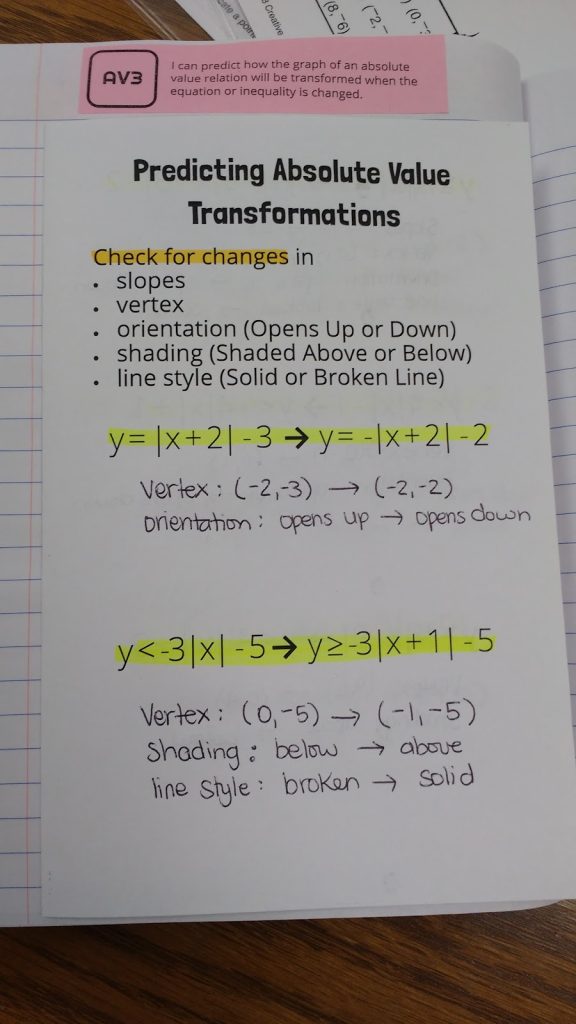 (8,⁻6)
(⁻2,⁻
(0,⁻
Creative
AV3
I can predict how the graph of an absolute
value relation will be transformed when the
equation or inequality is changed.
Predicting Absolute Value
Transformations
Check for changes in
• slopes
• vertex
• orientation (Opens Up or Down)
• shading (Shaded Above or Below)
• line style (Solid or Broken Line)
y=|x+2|-3 → y= -|x+2|-2
Vertex: (-2,-3) → (-2,-2)
orientation: opens up → opens down
y<-3|x|-5→ y≥-3|x+1|-5
Vertex: (0,-5) → (-1,-5)
Shading: below → above
line style: broken → solid